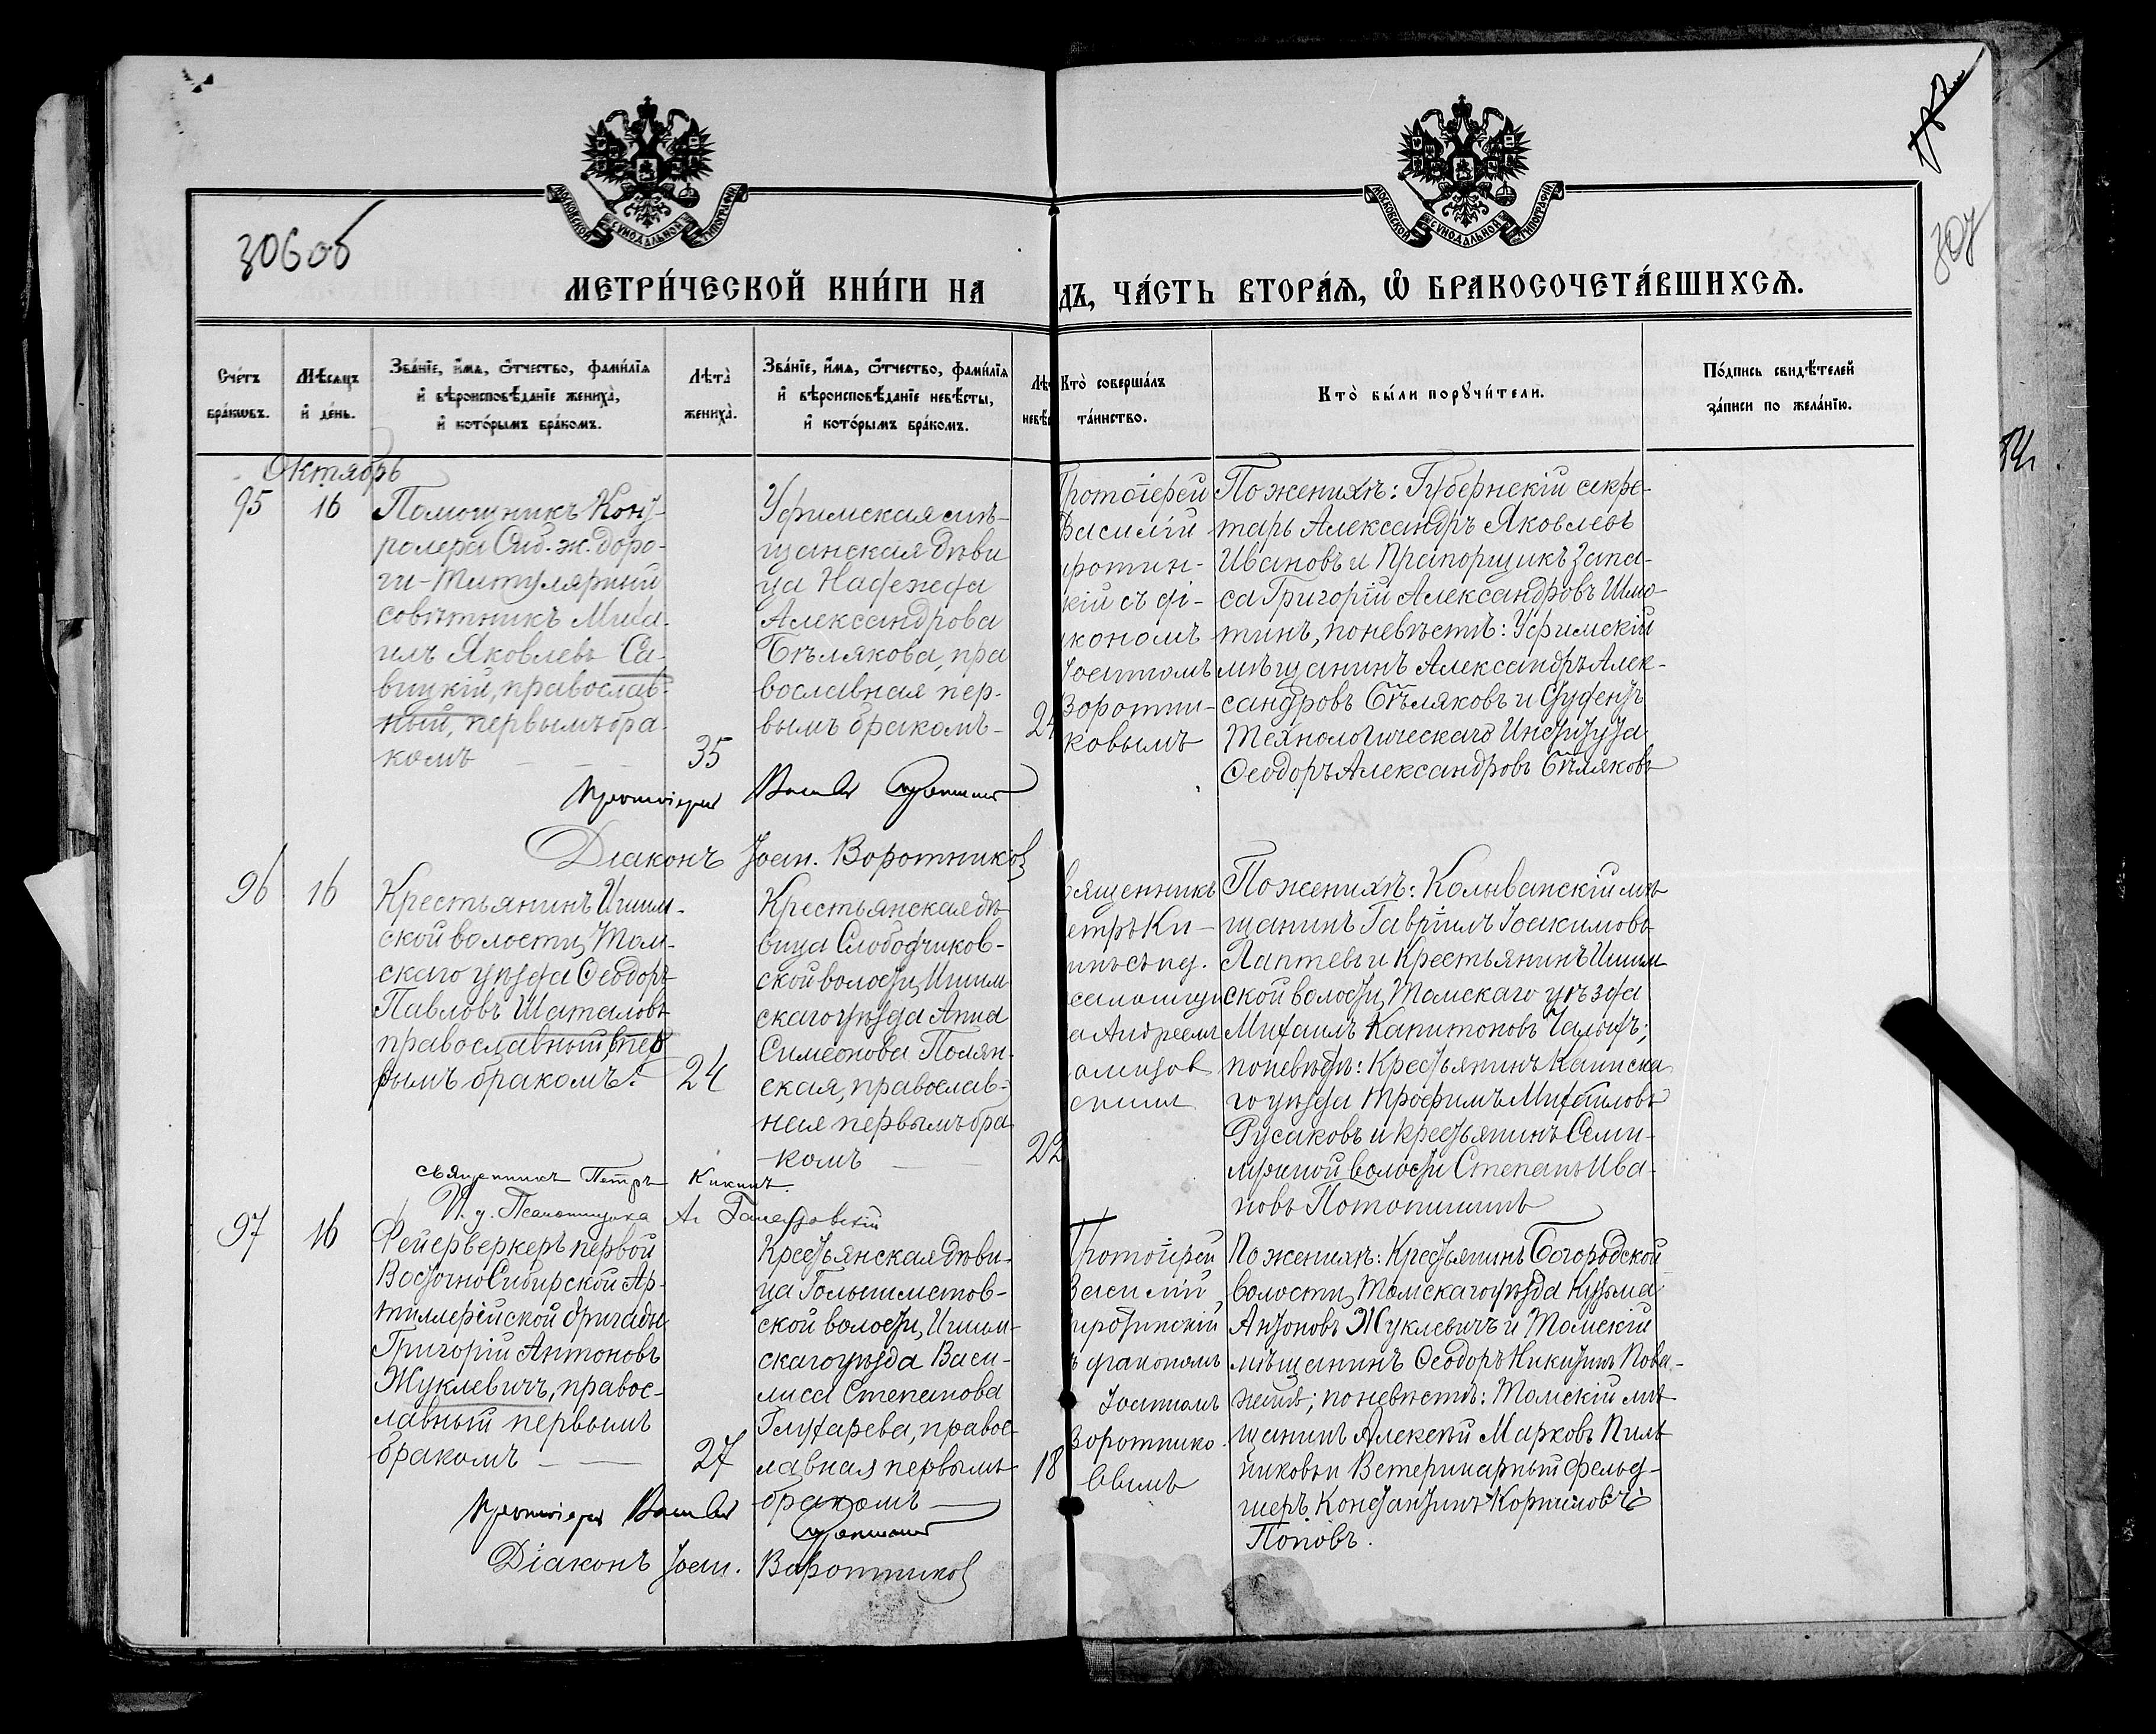 МОСКОВСКОЙ СУНОДАЛЬНОЙ ТИПОГРАФІИ
МОСКОВСКОЙ СУНОДАЛЬНОЙ ТИПОГРАФІИ
306об
307
МЕТРИ́ЧЕСКОЙ КНИ́ГИ НА
ДЪ, ЧА́СТЬ ВТОРА́Ѧ, Ѽ БРАКОСОЧЕТА́ВШИХСѦ.
Сче́тъ
бра́кѡвъ.
Мѣ́сяцъ
и҆ де́нь.
Зва́нїе, и҆́мѧ, ѻ҆́тчество, фамі́лїѧ
и҆ вѣроисповѣ́данїе жениха̀,
и҆ кото́рымъ бра́комъ.
Лѣта̀
жениха̀.
Зва́нїе, и҆́мѧ, ѻ҆́тчество, фамі́лїѧ
и҆ вѣроисповѣ́данїе невѣ́сты,
и҆ кото́рымъ бра́комъ.
Лѣт
невѣс
Кто̀ соверша́лъ
та́инство.
Кто̀ бы́ли порꙋчи́тели.
По́дпись свидѣ́телей
за́писи по жела́нїю.
Октябрь
95
16
Помощникъ Конт-
ролера Сиб. ж. доро-
ги - Титулярный
совѣтникъ Миха-
илъ Яковлевъ Са-
вицкій, православ-
ный, первымъ бра-
комъ
35
Уфимская мѣ-
щанская дѣви
ца Надежда
Александрова
Бѣлякова, пра
вославная пер-
вымъ бракомъ -
24
Протоіерей
Василій
ротин-
кій съ ді-
кономъ
Іоанномъ
Воротни-
ковымъ
По женихѣ: Губернскій секре-
тарь Александръ Яковлевъ
Ивановъ и Прапорщикъ запа-
са Григорій Александровъ
по невѣстѣ: Уфимскій
мѣщанинъ Александръ Алек-
сандровъ Бѣляковъ и Студентъ
Технологическаго Института
Ѳеодоръ Александровъ Бѣляковъ
Протоіерей Василій
Діаконъ Іоан. Воротников
96
16
Крестьянинъ Ишим-
ской волости, Том-
скаго уѣзда Ѳеодоръ
Павловъ Шаталовъ
православный, пер
вымъ бракомъ.
24
Крестьянская дѣ
вица Слободчиков-
ской волости, Ишим
скаго уѣзда Анна
Симеонова Полян-
ская, православ-
ная первымъ бра
-комъ
22
вященникъ
етръ Ки-
инъ съ и.д.
саломщи
а Андреем
По женихѣ: Колыванскій мѣ
щанинъ Гавріилъ Іоакимовъ
Лаптевъ и Крестьянинъ Ишим
ской волости, Томскаго уѣзда
Михаилъ Капитоновъ
по невѣстѣ: Крестьянинъ Каинска
го уѣзда Трофимъ Михайловъ
Русаковъ и крестьянинъ Семи-
лужной волости Степанъ Ива-
новъ
священникъ Петръ Кикинъ.
И. д. Псаломщика А.
97
16
Фейерверкеръ первой
Восточно Сибирской Ар-
тиллерійской бригады
Григорій Антоновъ
Жуклевичъ, правос-
лавный первымъ
бракомъ
27
Крестьянская дѣви-
ца Голышметов-
ской волости, Ишим-
скаго уѣзда Васи-
лиса Степанова
Глухарева, правос-
лавная первымъ
бракомъ
18
Протоіерей
Василій
ъ діакономъ
Іоанномъ
Воротнико-
вымъ
По женихѣ: Крестьянинъ Богородской
волости, Томскаго уѣзда Кузьма
Антоновъ Жуклевичъ и Томскій
мѣщанинъ Ѳеодоръ Никитинъ
по невѣстѣ: Томскій мѣ
щанинъ Алексѣй Марковъ Пиль
никовъ и Ветеринарный фельд-
шеръ Константинъ Корниловъ
Поповъ.
Протоіерей Василій
Діаконъ Іоан. Воротников